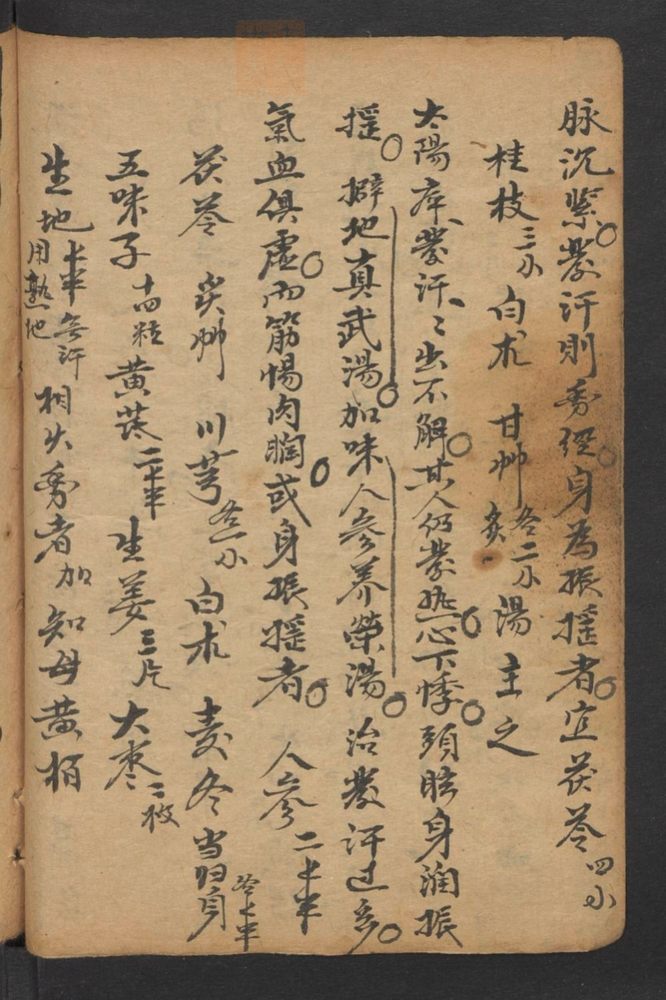 脉沉緊發汗則動經身為振摇者宜茯苓四小
桂枝三小白朮甘艸炙各二小湯主之
太陽病發汗汗出不解其人仍發热心下悸頭眩身潤振
摇擗地真武湯加味人参养榮湯治發汗过多
氣血俱虚而筋惕肉瞤或身振摇者人參二半
茯苓炙艸川芎各一小白朮麦冬当归身各半
五味子十四粒黄茋二半生姜三片大枣二枚
生地半無汗用熟地相火動者加知母黄栢